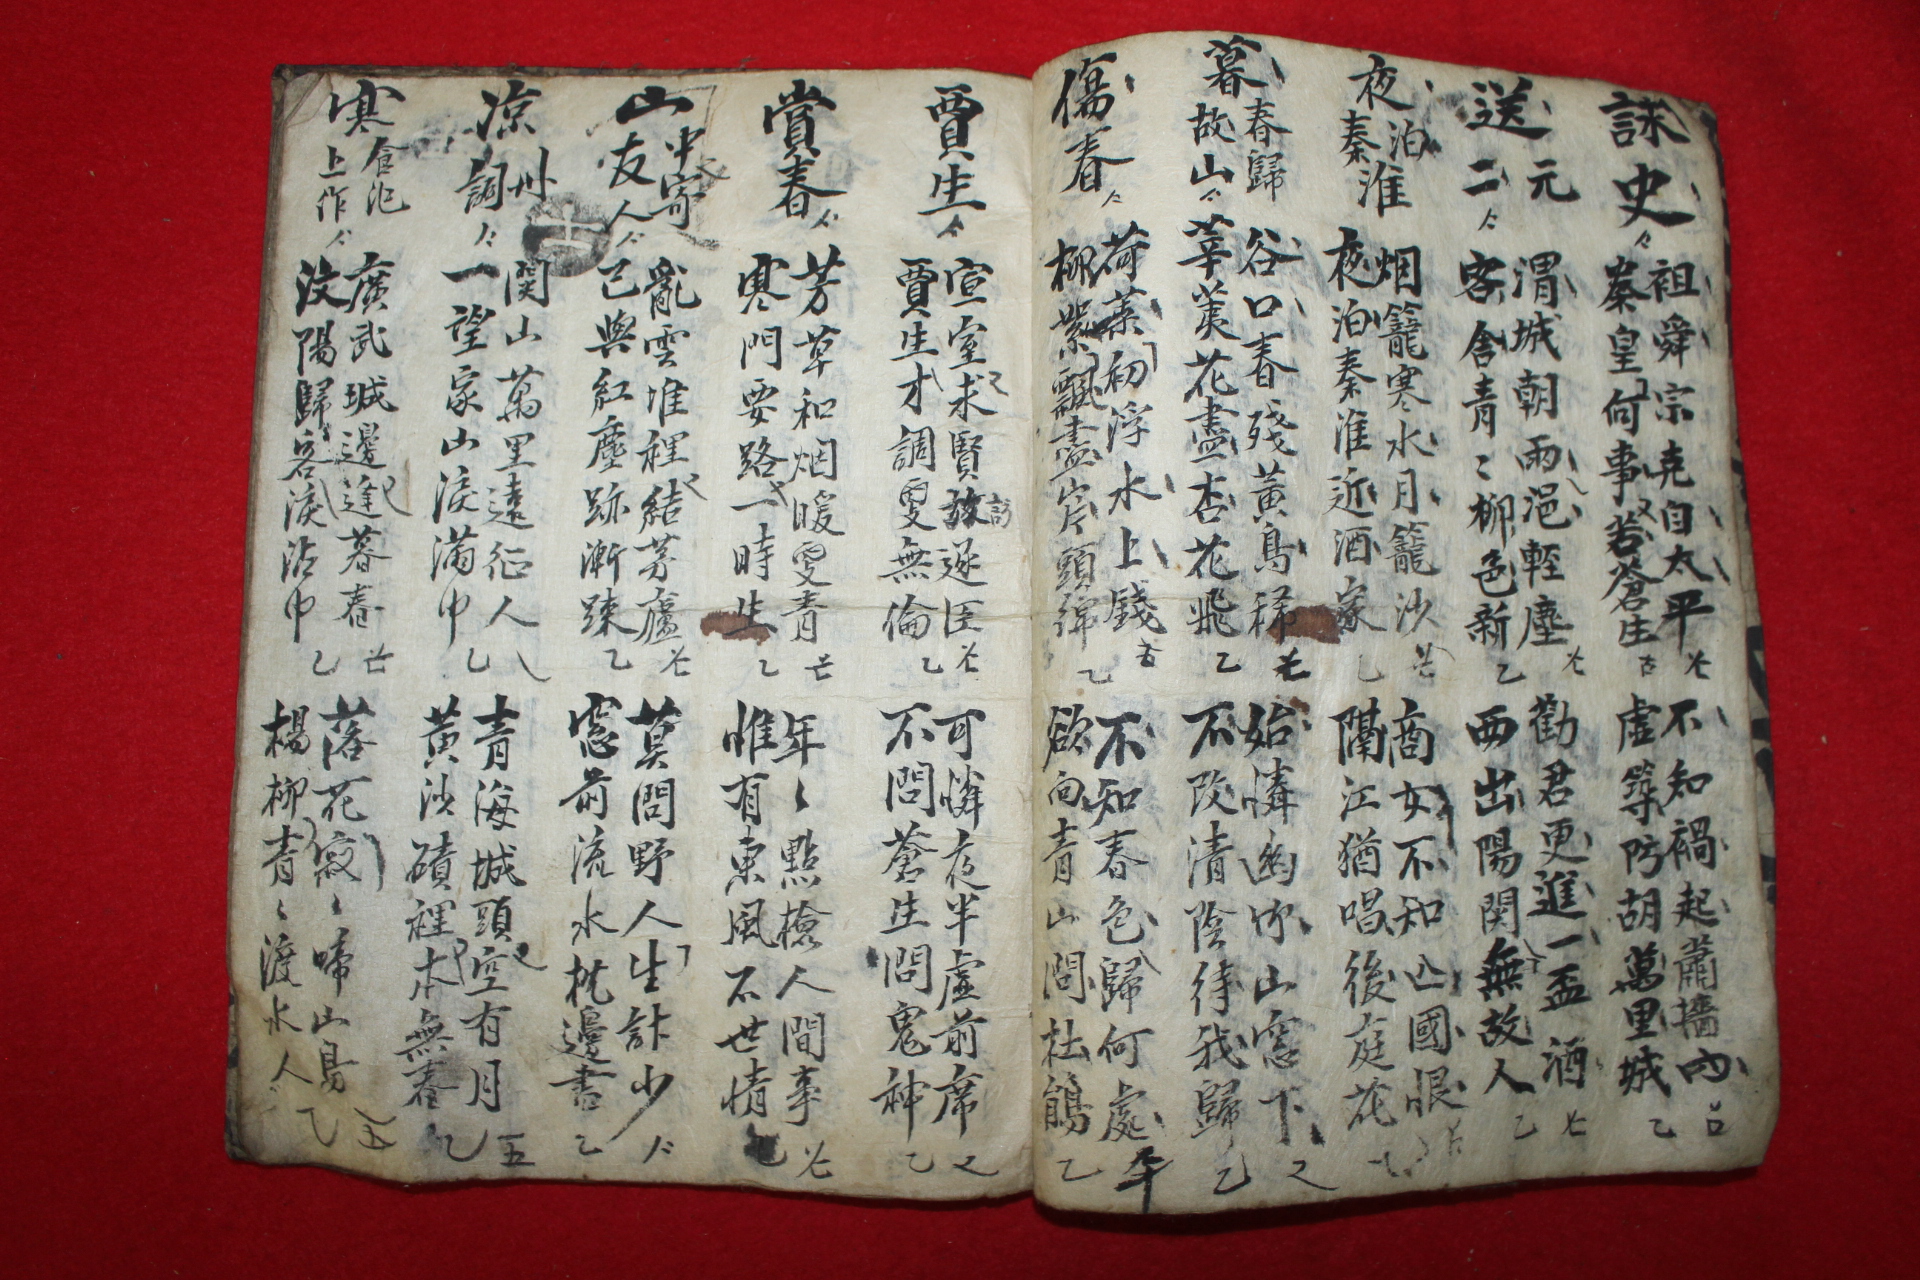 詠史
祖舜宗堯自太平
秦皇何事苦蒼生
不知禍起蕭墻內
虛築防胡萬里城
送元
二
渭城朝雨浥輕塵
客舍青〻柳色新
勸君更進一盃酒
西出陽関無故人
夜泊
秦淮
烟籠寒水月籠沙
夜泊秦淮近酒家
商女不知亡國恨
隔江猶唱後庭花
暮春歸
故山
谷口春殘黃鳥稀
莘荑花盡杏花飛
始憐幽竹山窓下
不改清陰待我歸
傷春
荷葉初浮水上錢
柳絮飄盡岸頭綿
不知春色歸何處
欲向青山問杜鵑
賈生
宣室求賢訪逐臣
賈生才調更無倫
可憐夜半虛前席
不問蒼生問鬼神
賞春
芳草和烟暖更青
寒門要路一時生
年〻點檢人間事
惟有東風不世情
山中寄
友人
亂雲堆裡結茅廬
已與紅塵跡漸踈
莫問野人生計少
窓前流水枕邊書
凉州
詞
関山萬里遠征人
一望家山淚滿巾
青海城頭空有月
黃沙磧裡本無春
寒食汜
上作
廣武城邊逢暮春
汶陽歸客淚沾巾
落花寂〻啼山鳥
楊柳青〻渡水人